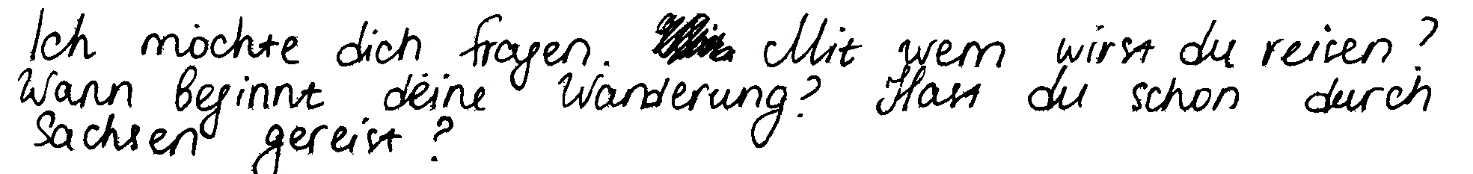 Ich möchte dich fragen. Mit wem wirst du reisen?
Wann beginnt deine Wanderung? Hast du schon durch
Sachsen gereist?